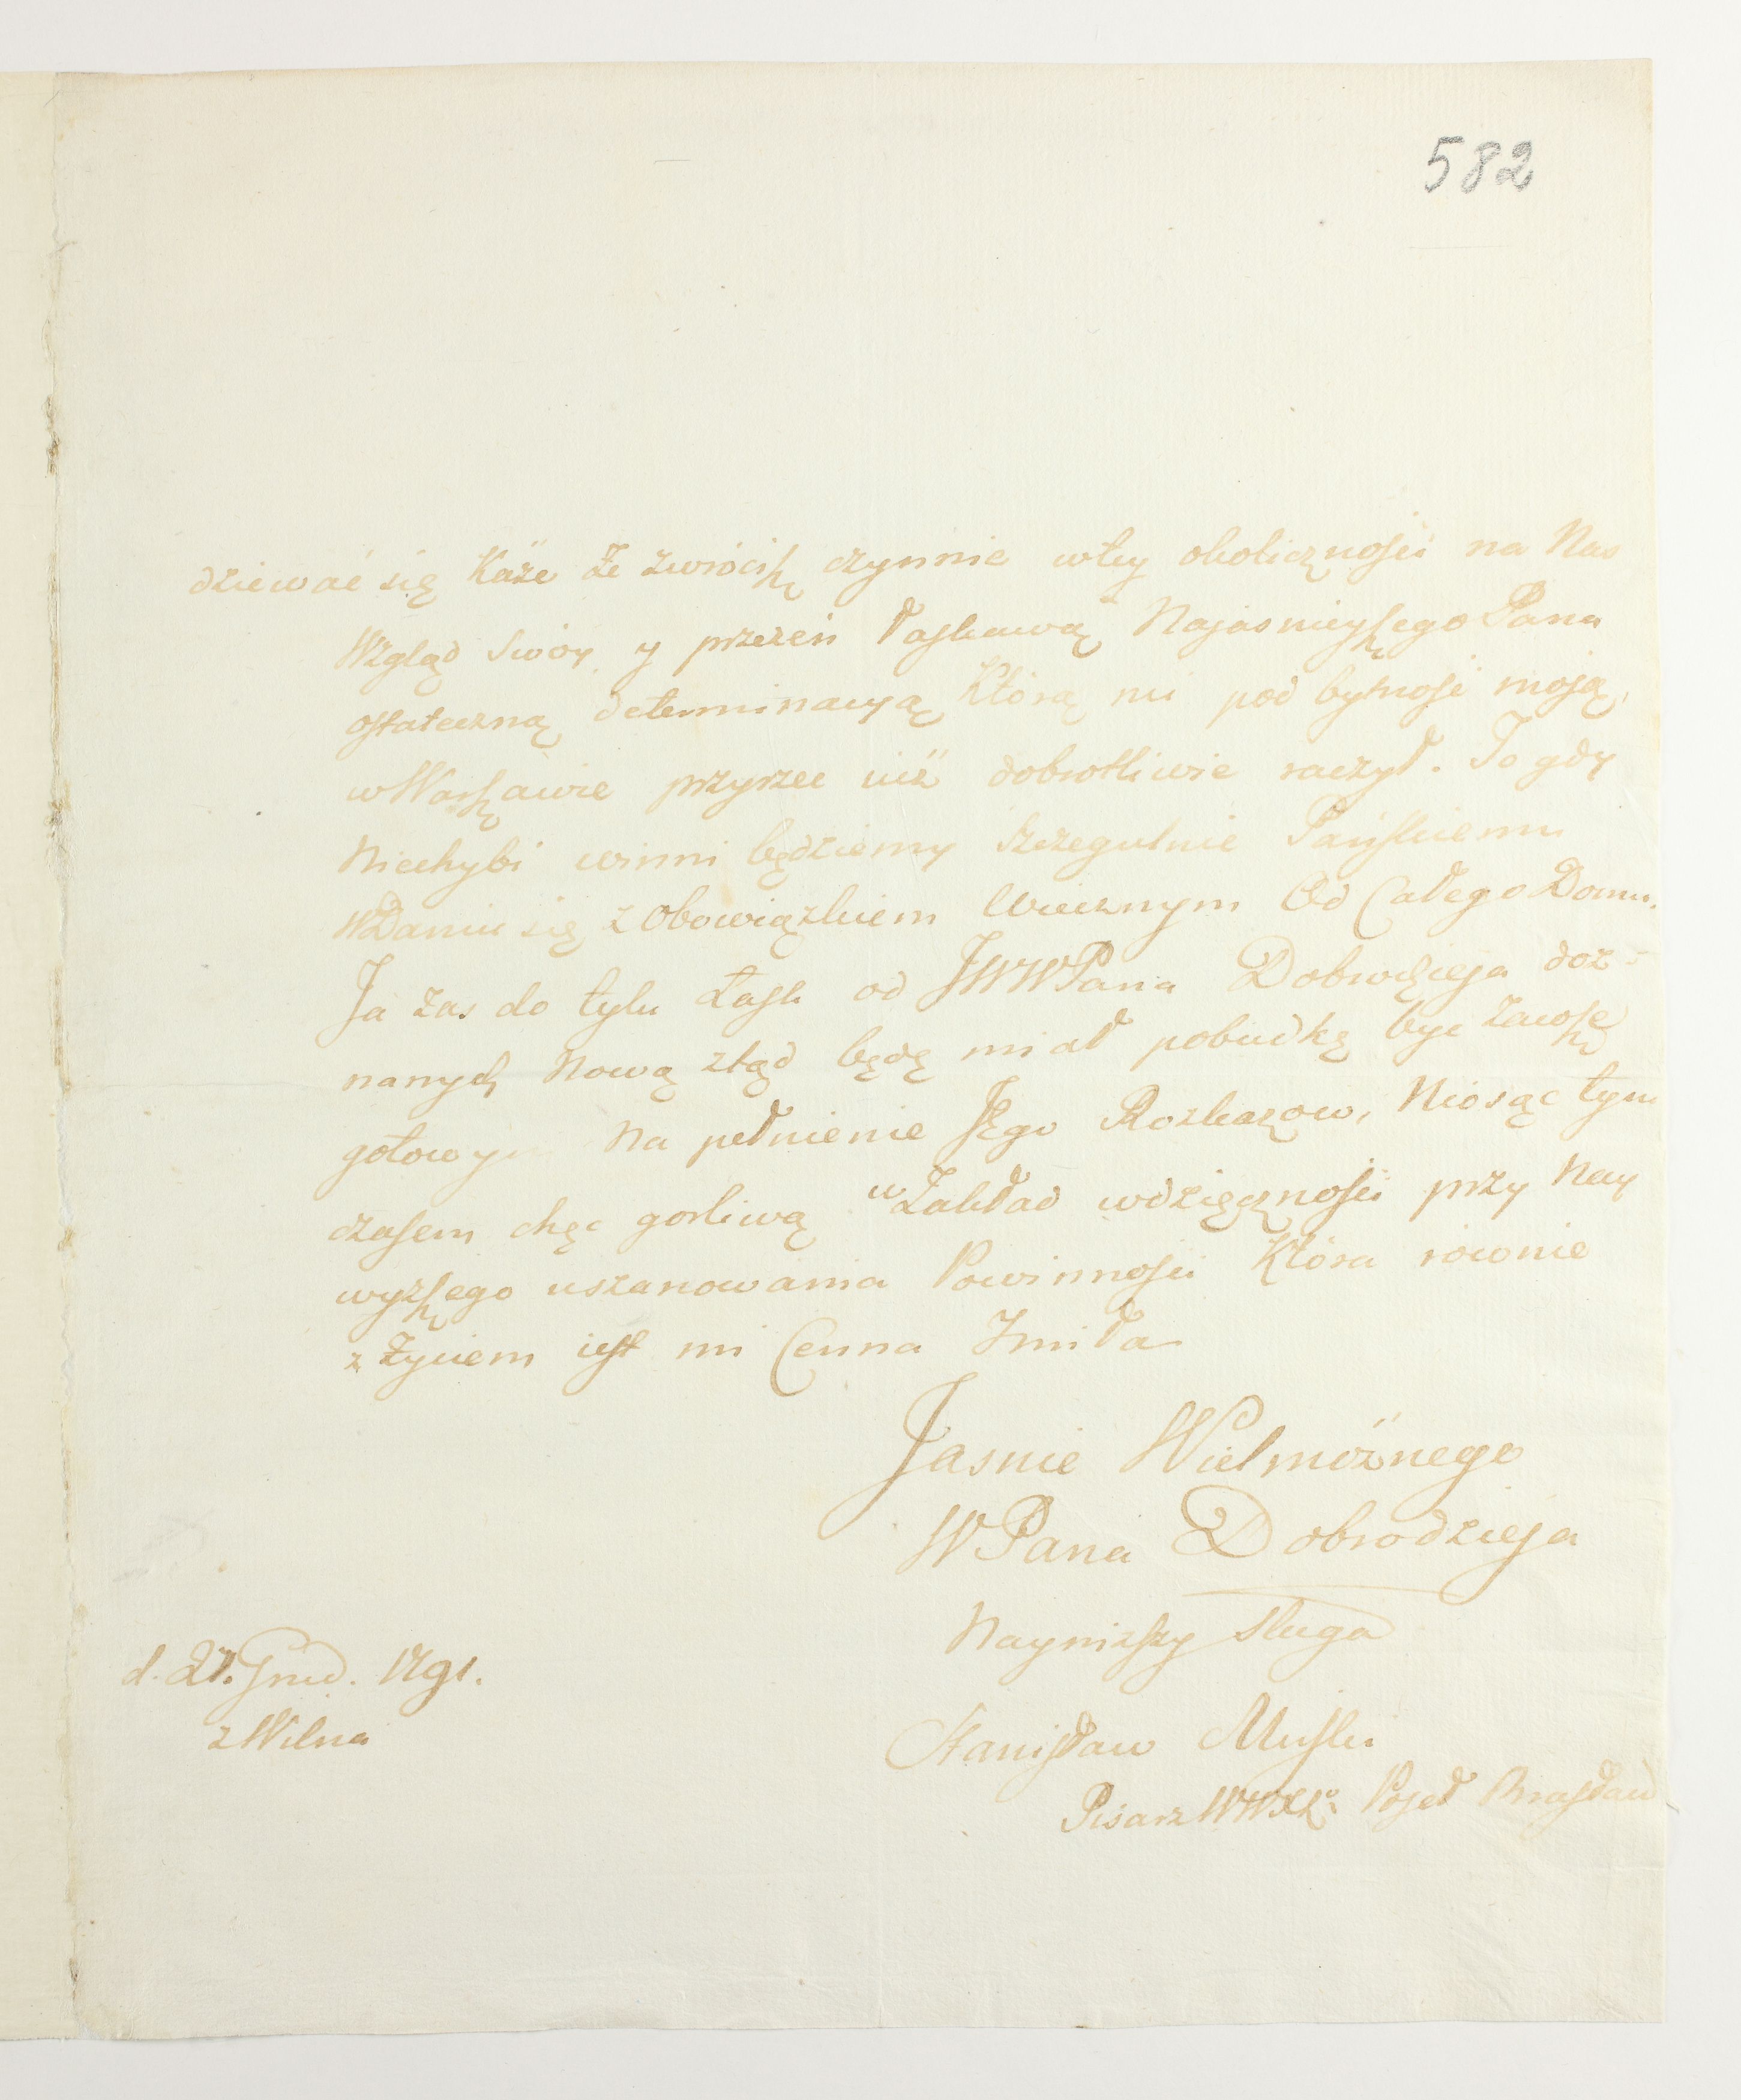 582
dziewać się każe że zwrócisz czynnie w tey okoliczności na Nas
Wzgląd swóy y przezeń łaskawą Najasnieyszego Pana
ostateczną determinacyą Którą mi pod bytność moją,
w Warszawie przyrzec iuż dobrotliwie raczył. To gdy
Niechybi winni będziemy szczegulnie Pańskiemu
WDaniu się z Obowiązkiem Wiecznym Od Całego Domu.
Ja zas do tylu Łask od JWWPana Dobrodzieja doz-
nanych Nową ztąd będę miał pobudkę byc Zawsze
gotowym Na pełnienie Jego Rozkazow, Niosąc tym
czasem chęc gorliwą w Zakład wdzięczności przy Nay
wyższego uszanowania Powinności Która rownie
z Życiem iest mi Cenna Imiła
Jasnie Wielmożnego
WPana Dobrodzieja
Nayniższy Sługa
d. 27. Grud. 1791.
z Wilna
Stanisław Muski
Pisarz WWXL: Powt Brasław